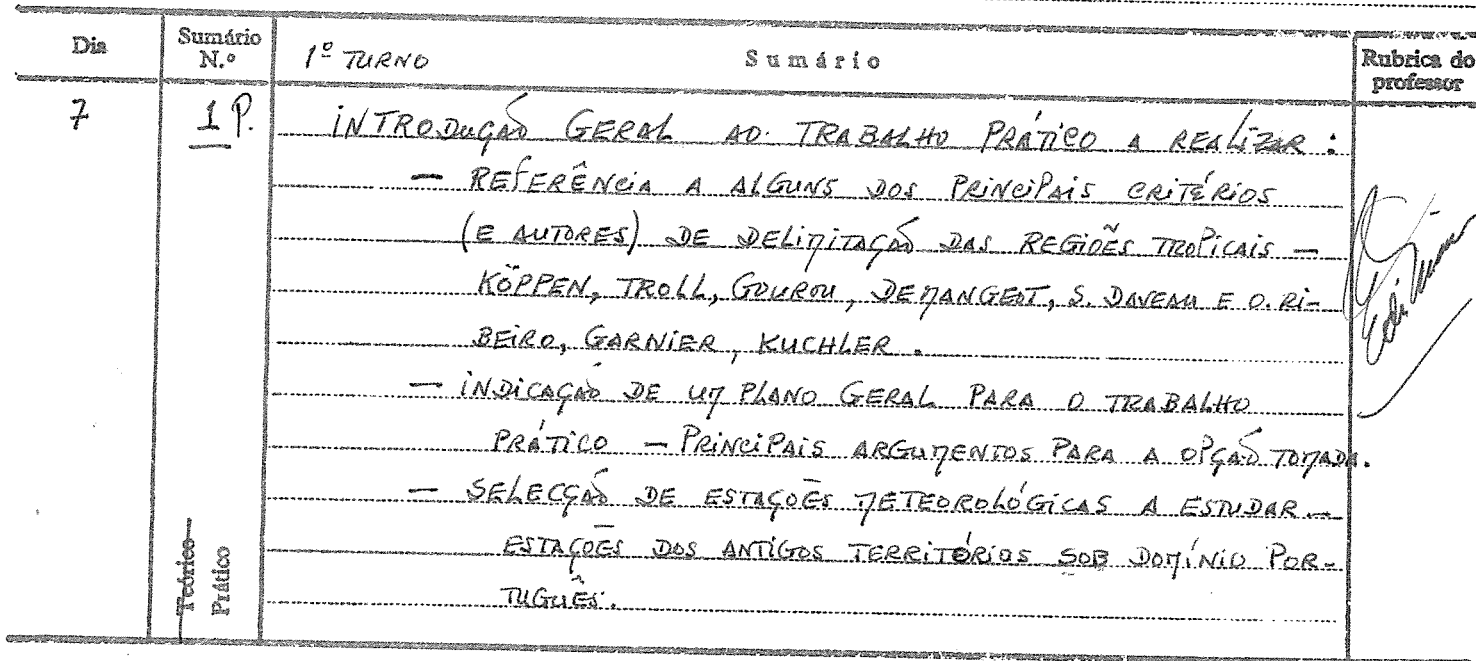 Dia
Sumário N.º
1º TURNO
Sumário
Rubrica do professor
7
1 P.
INTRODUÇÃO GERAL AO TRABALHO PRÁTICO A REALIZAR :
— REFERÊNCIA A ALGUNS DOS PRINCIPAIS CRITÉRIOS
(E AUTORES) DE DELIMITAÇÃO DAS REGIÕES TROPICAIS —
KÖPPEN, TROLL, GOUROU, DEMANGEOT, S. DAVEAU E O. RI-
BEIRO, GARNIER, KUCHLER.
— INDICAÇÃO DE UM PLANO GERAL PARA O TRABALHO
PRÁTICO — PRINCIPAIS ARGUMENTOS PARA A OPÇÃO TOMADA.
— SELECÇÃO DE ESTAÇÕES METEOROLÓGICAS A ESTUDAR —
ESTAÇÕES DOS ANTIGOS TERRITÓRIOS SOB DOMÍNIO POR-
TUGUÊS.
Teórico
Prático